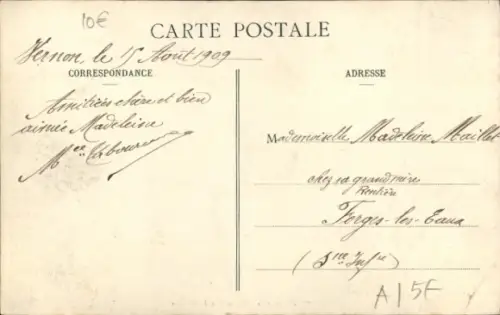 10€
CARTE POSTALE
Vernon, le 15 Août 1909
CORRESPONDANCE
ADRESSE
Amitiés chère et bien
aimée Madeleine
Mademoiselle Madeleine Maillet
chez sa grand mère
Rentière
Forges-les-Eaux
(Sne Infre)
A/5F